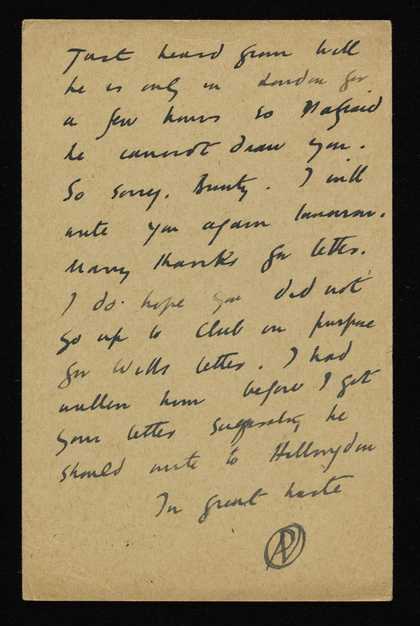 Just heard from Will
he is only in London for
a few hours so I'm afraid
he cannot draw you.
So sorry, Bunty. I will
write you again tomorrow.
Many thanks for letter.
I do hope you did not
go up to Club on purpose
for Wills letter. I had
written him before I got
your letter suggesting he
should write to Hillingdon
In great haste